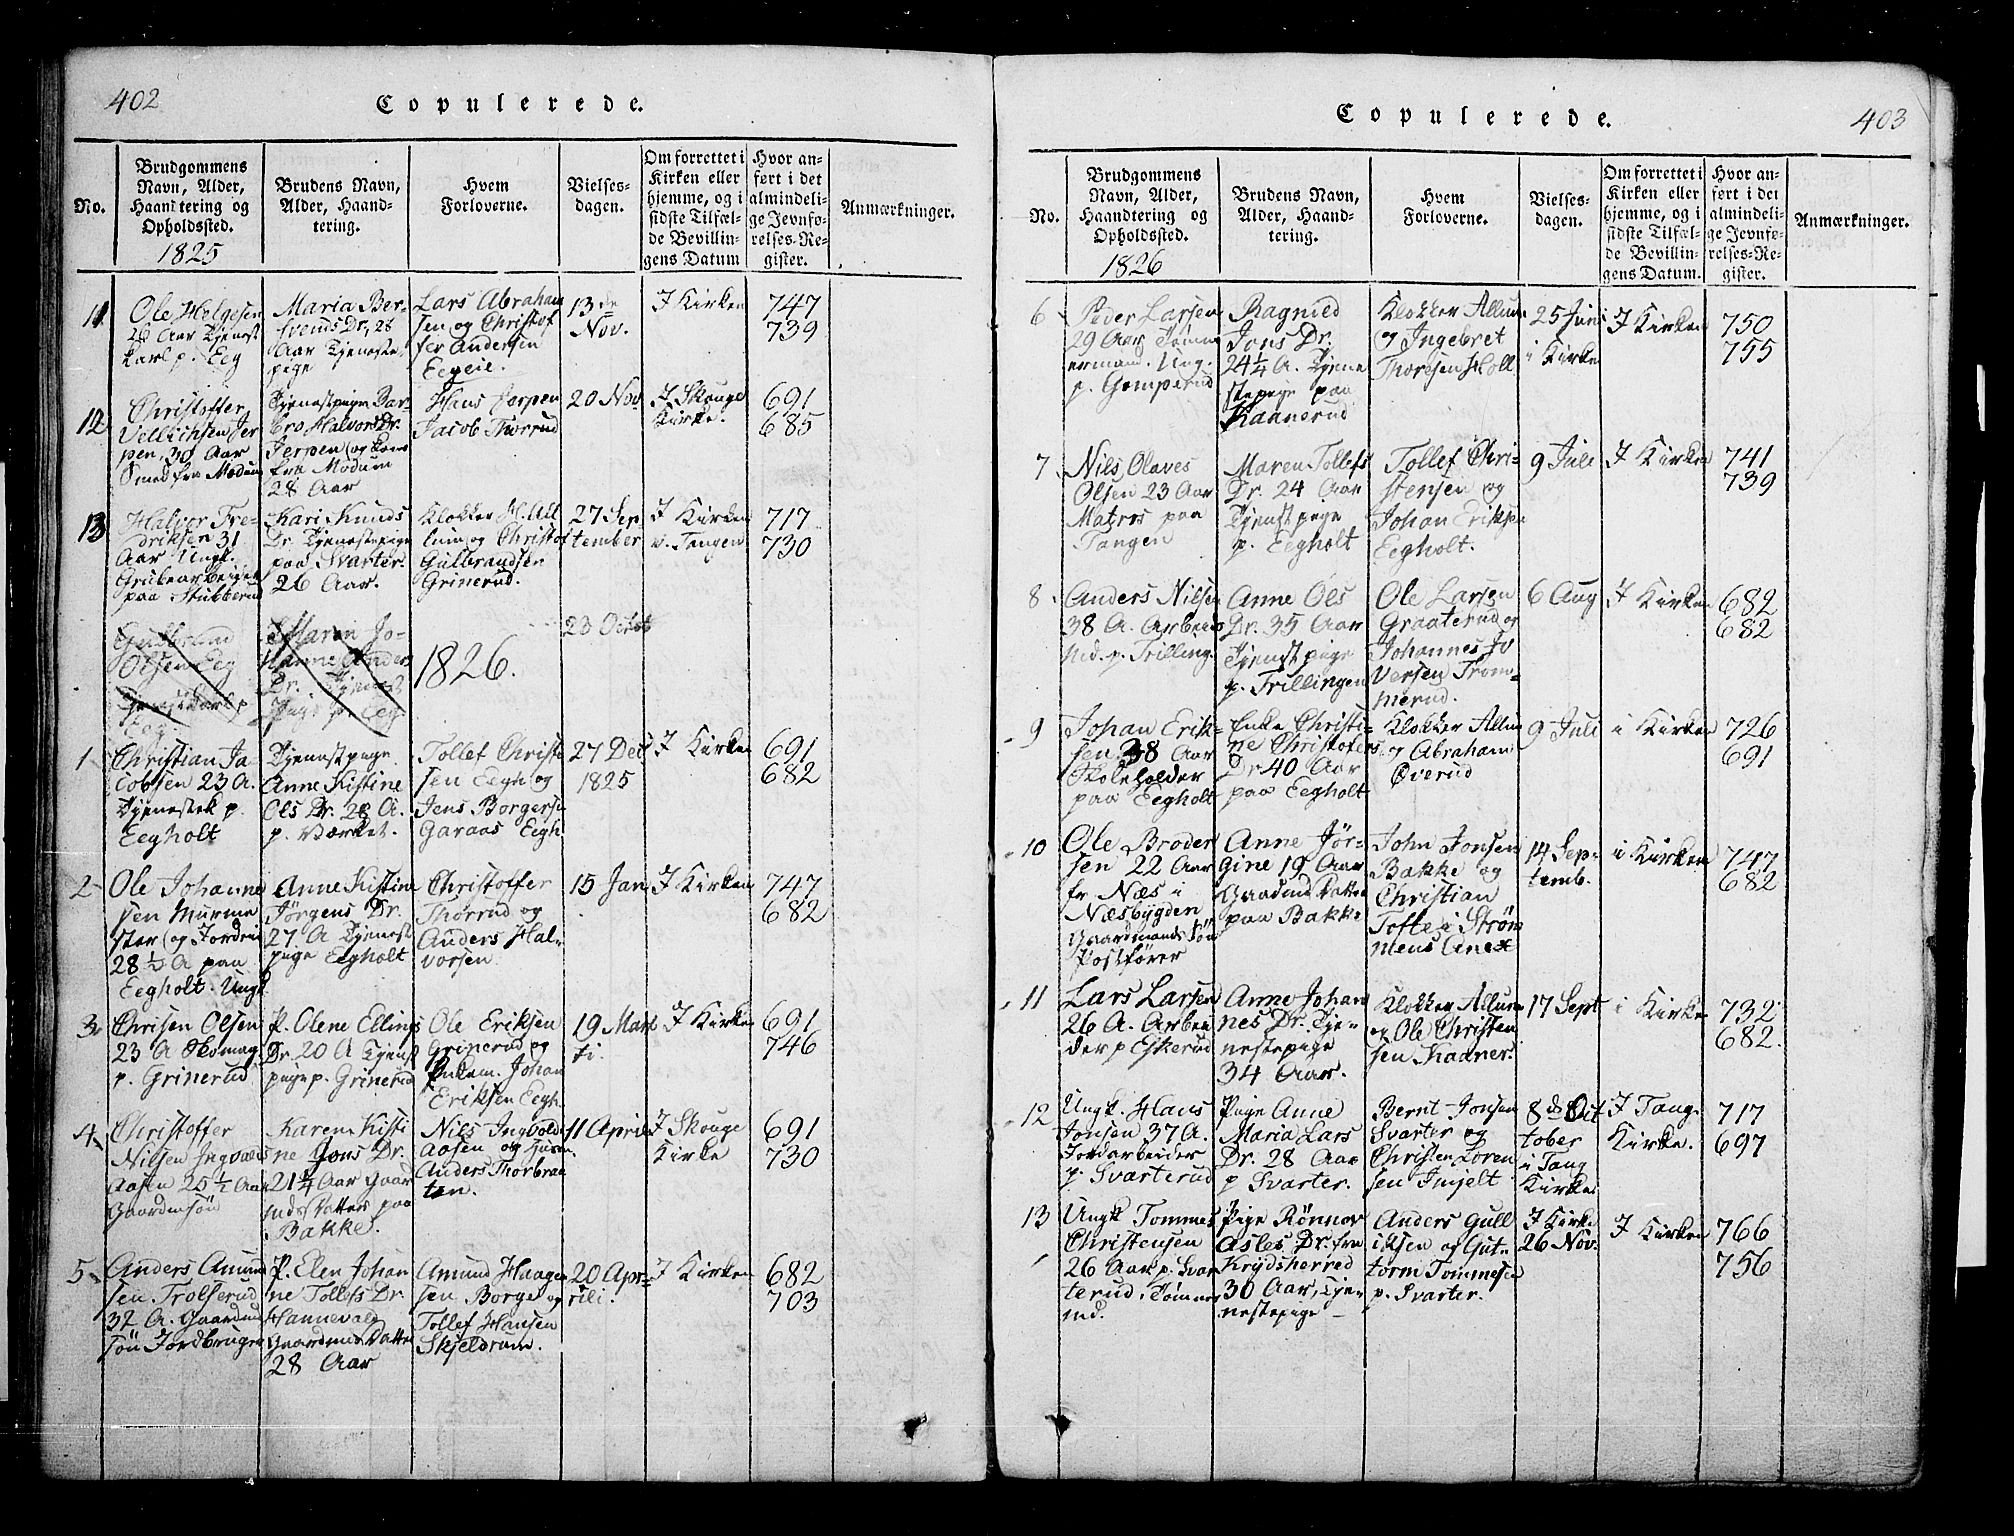 402
Copulerede.
No.
Brudgommens
Navn, Alder,
Haandtering og
Opholdssted.
1825
Brudens Navn,
Alder, Haand-
tering.
Hvem
Forloverne.
Vielses-
dagen.
Om forrettet i
Kirken eller
hjemme, og i
sidste Tilfæl-
de Bevillin-
gens Datum
Hvor an-
ført i det
almindeli-
ge Jevnfø-
relses-Re-
gister.
Anmærkninger.
11
Ole Helgesen
26 Aar Tjenest
karl p. Eeg
Maria Ber-
Dr, 28
Aar Tjeneste
pige
Lars Abraham
sen og Christof
fer Andersen
Eegeie.
13de
Nov.
I Kirken
747
739
12
Christoffer
Jer
pen, 30 Aar
Smed fra Modum
Tjenestpige Bar-
bro Halvors Dr.
Jerpen (og
fra Modum
28 Aar
Hans Jerpen
Jacob Thorrud
20 Nov
I Skouge
Kirke.
691
685
13
Halvor Fre-
driksen 31
Aar Ungk.
Grubearbeider
paa Stubberud
Kari Knuds
Dr. Tjenestepige
paa Svarter.
26 Aar.
Klokker H. All
um og Christof
Gulbrandsen
Grinerud.
27 Sep
tember
I Kirken
v. Tangen
717
730
Gulbrand
Olsen Eeg
Tjenestkarl p
Eeg
Maren Jo-
hanne Anders
Dr. Tjenest
Pige p. Eeg
1826.
23 Octob
1
Christian Ja
cobsen 23 A.
Tjenestek p.
Eegholt
Tjenestpige
Anne Kistine
Ols Dr. 28 A.
p. Værket.
Tollef Christ
sen Eegh og
Jens Borgers
Garaas Eegh
27 Dec
1825
I Kirken
691
682
2
Ole Johanne
sen Murme
ster (og Jordrei
28 ½ A paa
Eegholt. Ungk
Anne Kistine
Jørgens Dr.
27 A Tjenest
pige Eegholt
Christoffer
Thorrud og
Anders Hal-
vorsen
15 Jan
I Kirken
747
682
3
Chrisen Olsen
23 A Skomag
p. Grinerud
P. Olene Ellings
Dr. 20 A Tjenst
pige p. Grinerud
Ole Eriksen
Grinerud og
Enkem. Johan
Eriksen Eegh
19 Mart
ti.
I Kirken
691
746
4
Christoffer
Nilsen Ingvals
Aasen 25 ½ Aar
Gaardmsøn
Karen Kisti
ne Jons Dr.
21 ¼ Aar Gaar
mds Datter paa
Bakke.
Nils Ingvolds
Aasen og
Anders Thorbraa
ten.
11 April
I Skouge
Kirke
691
730
5
Anders Amun
sen Trolserud
32 A. Gaardm
søn Jordbruger
P. Elen Johan
ne Tollefs Dr.
Hannevald
Gaardms Datter
28 Aar
Amund Haagen
sen Borge og
Tollef Hansen
Skjeldrum.
20 Ap-
rili.
I Kirken
682
703
Copulerede.
403
No.
Brudgommens
Navn, Alder,
Haandtering og
Opholdssted.
1826
Brudens Navn,
Alder, Haand-
tering.
Hvem
Forloverne.
Vielses-
dagen.
Om forrettet i
Kirken eller
hjemme, og i
sidste Tilfæl-
de Bevillin-
gens Datum.
Hvor an-
ført i det
almindeli-
ge Jevnfø-
relses-Re-
gister.
Anmærkninger.
6
Peder Larsen
29 Aar Tøm
ermand. Ung.
p. Gomperud
Ragnild
Jons Dr.
24¼ A. Tjene
stepige paa
Kaanerud
Klokker Allum
og Ingebret
Thoresen Holl
25 Juni
i Kirke
I Kirken
750
755
7
Nils Olaves
Olsen 23 Aar
Matros paa
Tangen
Maren Tollefs
Dr. 24 Aar
Tjenstpige
p. Eegholt
Tollef Chri-
stensen og
Johan Eriksen
Eegholt.
9 Juli
I Kirken
741
739
8
Anders Nilsen
38 A. Arbeids
md. p. Trilling.
Anne Ols
Dr. 35 Aar
Tjenstpige
p. Trillingen
Ole Larsen
Graaterud og
Johannes Jv
versen Trom-
merud.
6 Aug
I Kirken
682
682
9
Johan Erik-
sen 38 Aar
Skoleholder
paa Eegholt
Enke Christi-
ne Christofers
Dr 40 Aar
paa Eegholt
Klokker Allum
og Abraham
Øverud
9 Juli
i Kirken
726
691
10
Ole Broder
sen 22 Aar
fr Næs i
Næsbygden
Gaardmands Søn
Postfører
Anne Jør-
gine 19 Aar
Gaardmd Datter
paa Bakke
John Jonsen
Bakke og
Christian
Tofte i Strøm
mens Anex
14 Sep-
temb.
i Kirken
747
682
11
Lars Larsen
26 A. Arbei
der p Eskerud
Anne Johan
nes Dr. Tje-
nestepige
34 Aar.
Klokker Allum
og Ole Christen
sen Kaaner.
17 Sept
i Kirke
732
682.
12
Ungk. Hans
Jonsen 37 A.
Jordarbeider
p. Svarterud
Pige Anne
Maria Lars
Dr. 28 Aar
p Svarter.
Bernt Jonsen
Svarter og
Christen Loren
sen
8de Oct
tober
i Tang
Kirke
I Tang.
Kirke.
717
697
13
Ungk Tommes
Christensen
26 Aar p. Svar
terud, Tømmer
md.
Pige Rönnov
Asles Dr. fra
Krydsherred
30 Aar, Tje-
nestepige –
Anders Gull
iksen og Gut-
torm Tommesen
p. Svarter.
I Kirke
26 Nov.
I Kirken
766
756